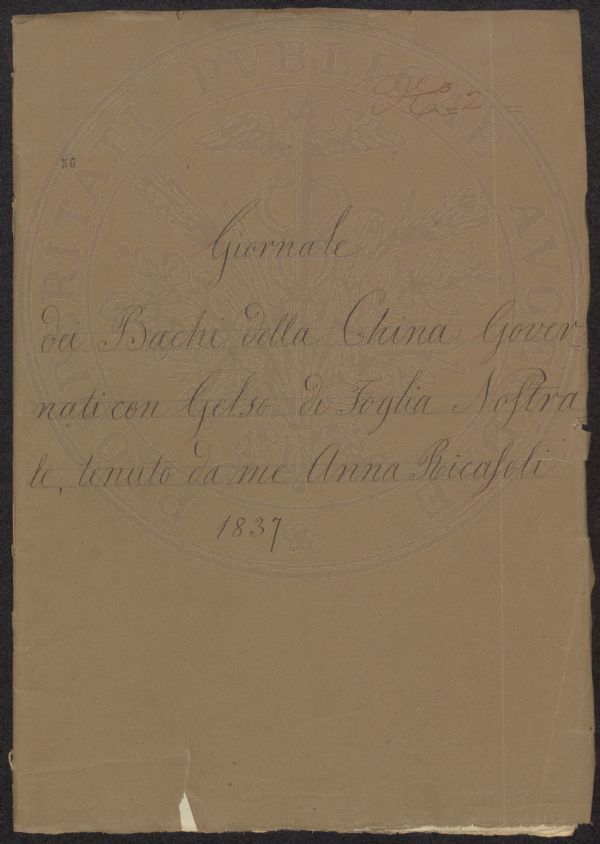 56
Giornale
dei Bachi della China Gover-
nati con Gelso di Foglia Nostra
le, tenuto da me Anna Ricasoli
1837
PROSPERITATI PVBLICAE AVGENDAE